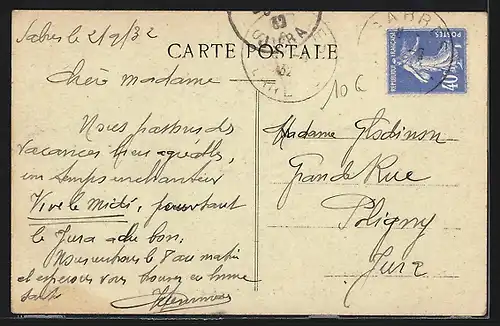 Sabres le 2/9/32
CARTE POSTALE
Chère madame
10 c
Nous passons des
vacances bien agréables,
un temps enchanteur
Vive le midi, pourtant
le Jura a du bon.
Nous rentrons le 8 au matin
et espérons vous trouver en bonne
santé
Madame
Grande Rue
Poligny
Jura
SABRES
JURA
32
REPUBLIQUE FRANÇAISE
POSTES
40 c